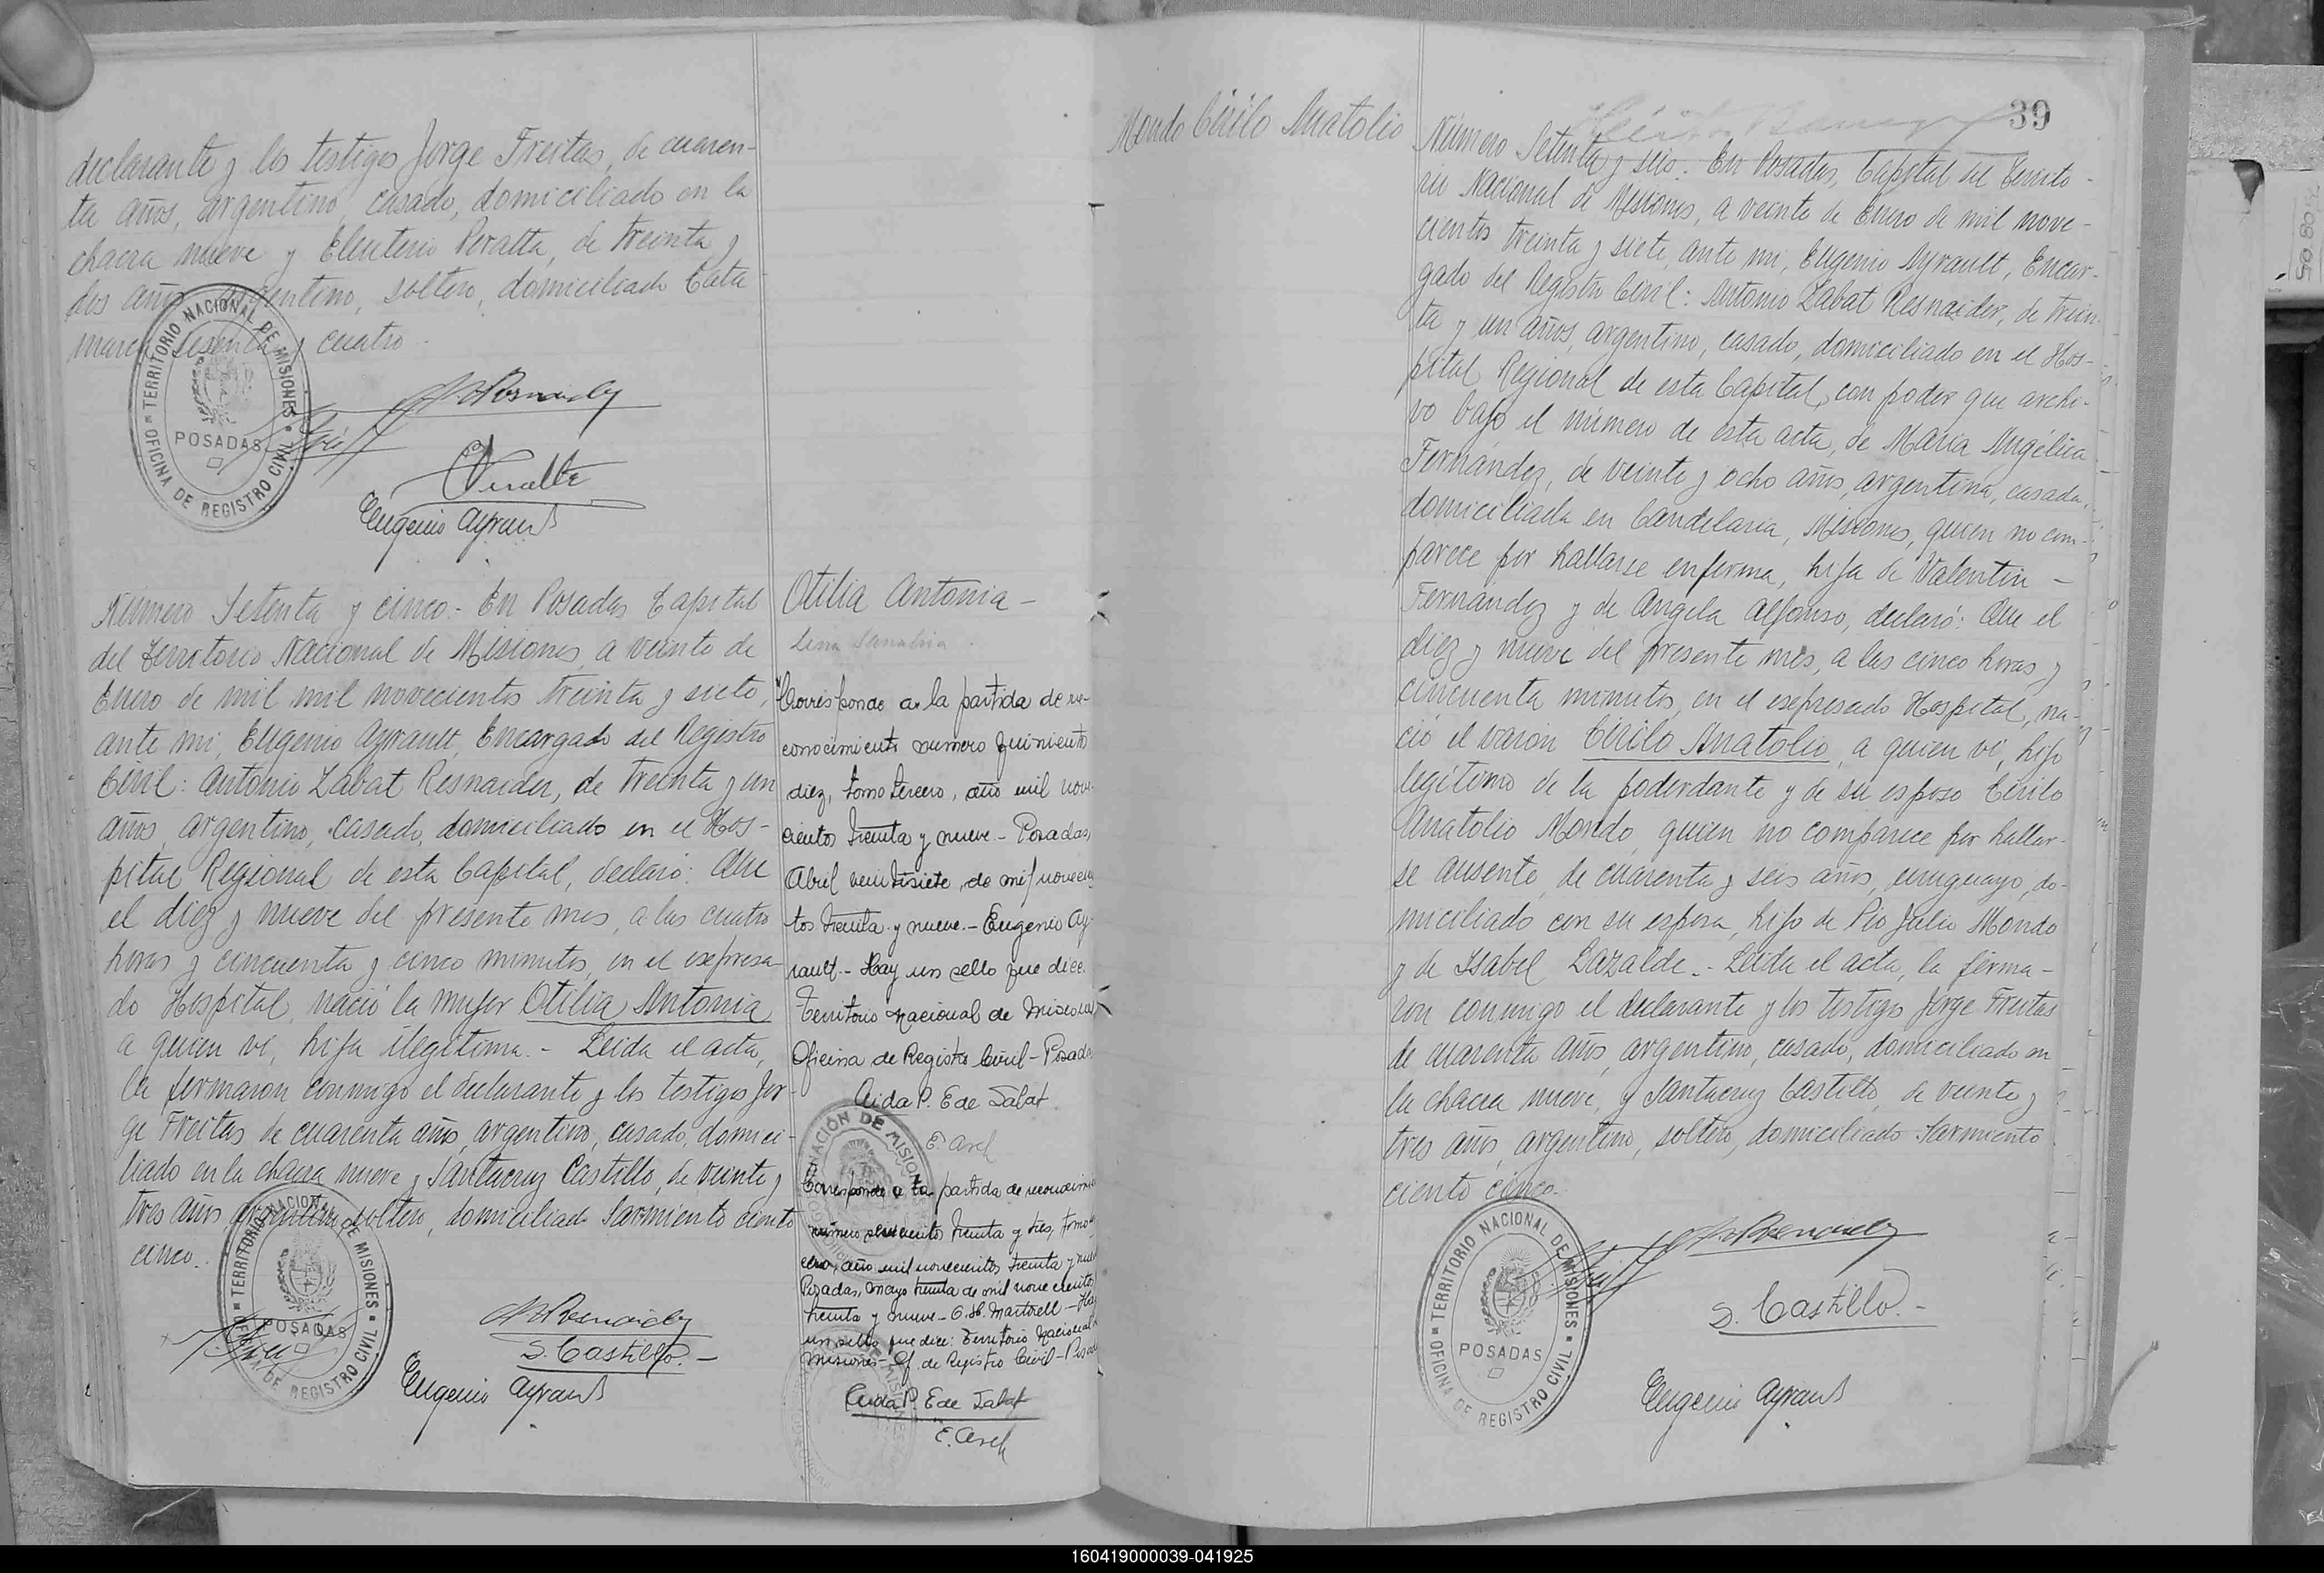 declarante y los testigos Jorge Freitas, de cuaren-
ta años, argentino, casado, domiciliado en la
chacra nueve y Eleuterio Peralta, de treinta y
dos años argentino, soltero, domiciliado Cata
marca sesenta y cuatro.-
TERRITORIO NACIONAL DE MISIONES
POSADAS
OFICINA DE REGISTRO CIVIL
Eugenio Ayrault
Número Setenta y cinco.- En Posadas Capital
del Territorio Nacional de Misiones, a veinte de
Enero de mil mil novecientos treinta y siete,
ante mi, Eugenio Ayrault, Encargado del Registro
Civil: Antonio Labat Resnaider, de treinta y un
años, argentino, casado, domiciliado en el Hos-
pital Regional de esta Capital, declaró: Que
el diez y nueve del presente mes, a las cuatro
horas y cincuenta y cinco minutos, en el expresa-
do Hospital, nació la mujer Otilia Antonia
a quien vi, hija ilegítima.- Leida el acta,
la firmaron conmigo el declarante y los testigos Jor-
ge Freitas de cuarenta años, argentino, casado, domici-
liado en la chacra nueve y Santacruz Castillo, de veinte y
tres años, argentino, soltero, domiciliado Sarmiento ciento
cinco.
TERRITORIO NACIONAL DE MISIONES
POSADAS
OFICINA DE REGISTRO CIVIL
S. Castillo.-
Eugenio Ayrault
Otilia Antonia -
Lena Sanabria
Corresponde a la partida de re-
conocimiento numero quinientos
diez, tomo tercero, año mil nove-
cientos treinta y nueve.- Posadas,
Abril veintisiete, de mil novecien
tos treinta y nueve.- Eugenio Ay-
rault.- Hay un sello que dice:
Territorio Nacional de Misiones
Oficina de Registro Civil - Posadas
Aida P. E de Labat
Corresponde a la partida de reconocimie
número seiscientos treinta y tres, tomo
año mil novecientos treinta y nueve
Posadas, mayo treinta de mil novecientos
treinta y nueve - O. H. Martorell - Hay
un sello que dice: Territorio Nacional
Misiones - Of. de Registro Civil - Posadas
Aida P. E de Labat
39
Mondo Cirilo Anatolio
Número Setenta y seis.- En Posadas, Capital del Territo-
rio Nacional de Misiones, a veinte de Enero de mil nove-
cientos treinta y siete, ante mi, Eugenio Ayrault, Encar-
gado del Registro Civil: Antonio Labat Resnaider, de trein-
ta y un años, argentino, casado, domiciliado en el Hos-
pital Regional de esta Capital, con poder que archi-
vo bajo el número de esta acta, de María Angélica
Fernández, de veinte y ocho años, argentina, casada,
domiciliada en Candelaria, Misiones, quien no com-
parece por hallarse enferma, hija de Valentin -
Fernández y de Angela Alfonso, declaró: Que el
diez y nueve del presente mes, a las cinco horas y
cincuenta minutos, en el expresado Hospital, na-
ció el varón Cirilo Anatolio, a quien vi, hijo
legítimo de la poderdante y de su esposo Cirilo
Anatolio Mondo, quien no comparece por hallar-
se ausente, de cuarenta y seis años, uruguayo, do-
miciliado con su esposa, hijo de Pio Julio Mondo
y de Isabel Lazalde.- Leida el acta, la firma-
ron conmigo el declarante y los testigos Jorge Freitas
de cuarenta años, argentino, casado, domiciliado en
la chacra nueve, y Santacruz Castillo, de veinte y
tres años, argentino, soltero, domiciliado Sarmiento
ciento cinco.-
TERRITORIO NACIONAL DE MISIONES
POSADAS
OFICINA DE REGISTRO CIVIL
S. Castillo.-
Eugenio Ayrault
160419000039-041925